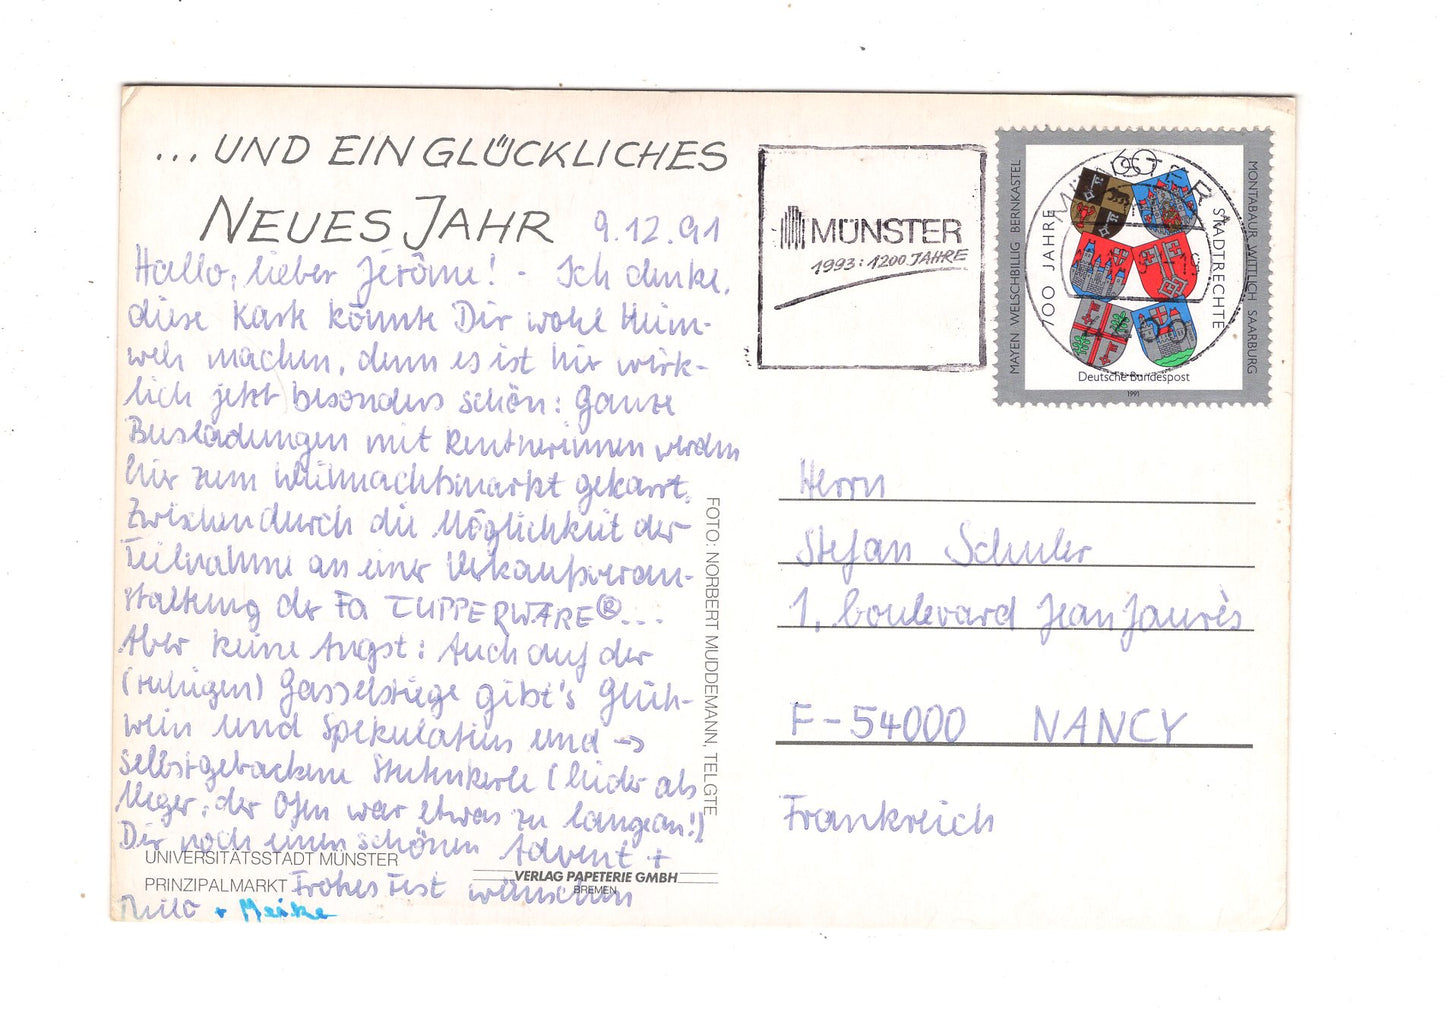 ... UND EIN GLÜCKLICHES
NEUES JAHR
9.12.91
Hallo, lieber Jérôme! - Ich denke,
diese Karte könnte Dir wohl Heim-
weh machen, denn es ist hier wirk-
lich jetzt besonders schön: Ganze
Busladungen mit Rentnerinnen werden
hier zum Weihnachtsmarkt gekarrt.
Zwischendurch die Möglichkeit der
Teilnahme an einer Verkaufsveran-
staltung der Fa TUPPERWARE®...
Aber keine Angst: Auch auf der
(ruhigen) Gasselstiege gibt's Glüh-
wein und Spekulatius und →
selbstgebackene Stutenkerle (leider als
Neger, der Ofen war etwas zu lange an!)
Dir noch einen schönen Advent +
Frohes Fest wünschen
+ Meike
UNIVERSITÄTSSTADT MÜNSTER
PRINZIPALMARKT
VERLAG PAPETERIE GMBH
BREMEN
FOTO: NORBERT MUDDEMANN, TELGTE
MÜNSTER
1993: 1200 JAHRE
60
MAYEN WELSCHBILLIG BERNKASTEL
MONTABAUR WITTLICH SAARBURG
700 JAHRE
STADTRECHTE
Deutsche Bundespost
1991
Herrn
Stefan Schuler
1, boulevard Jean Jaurès
F-54000 NANCY
Frankreich